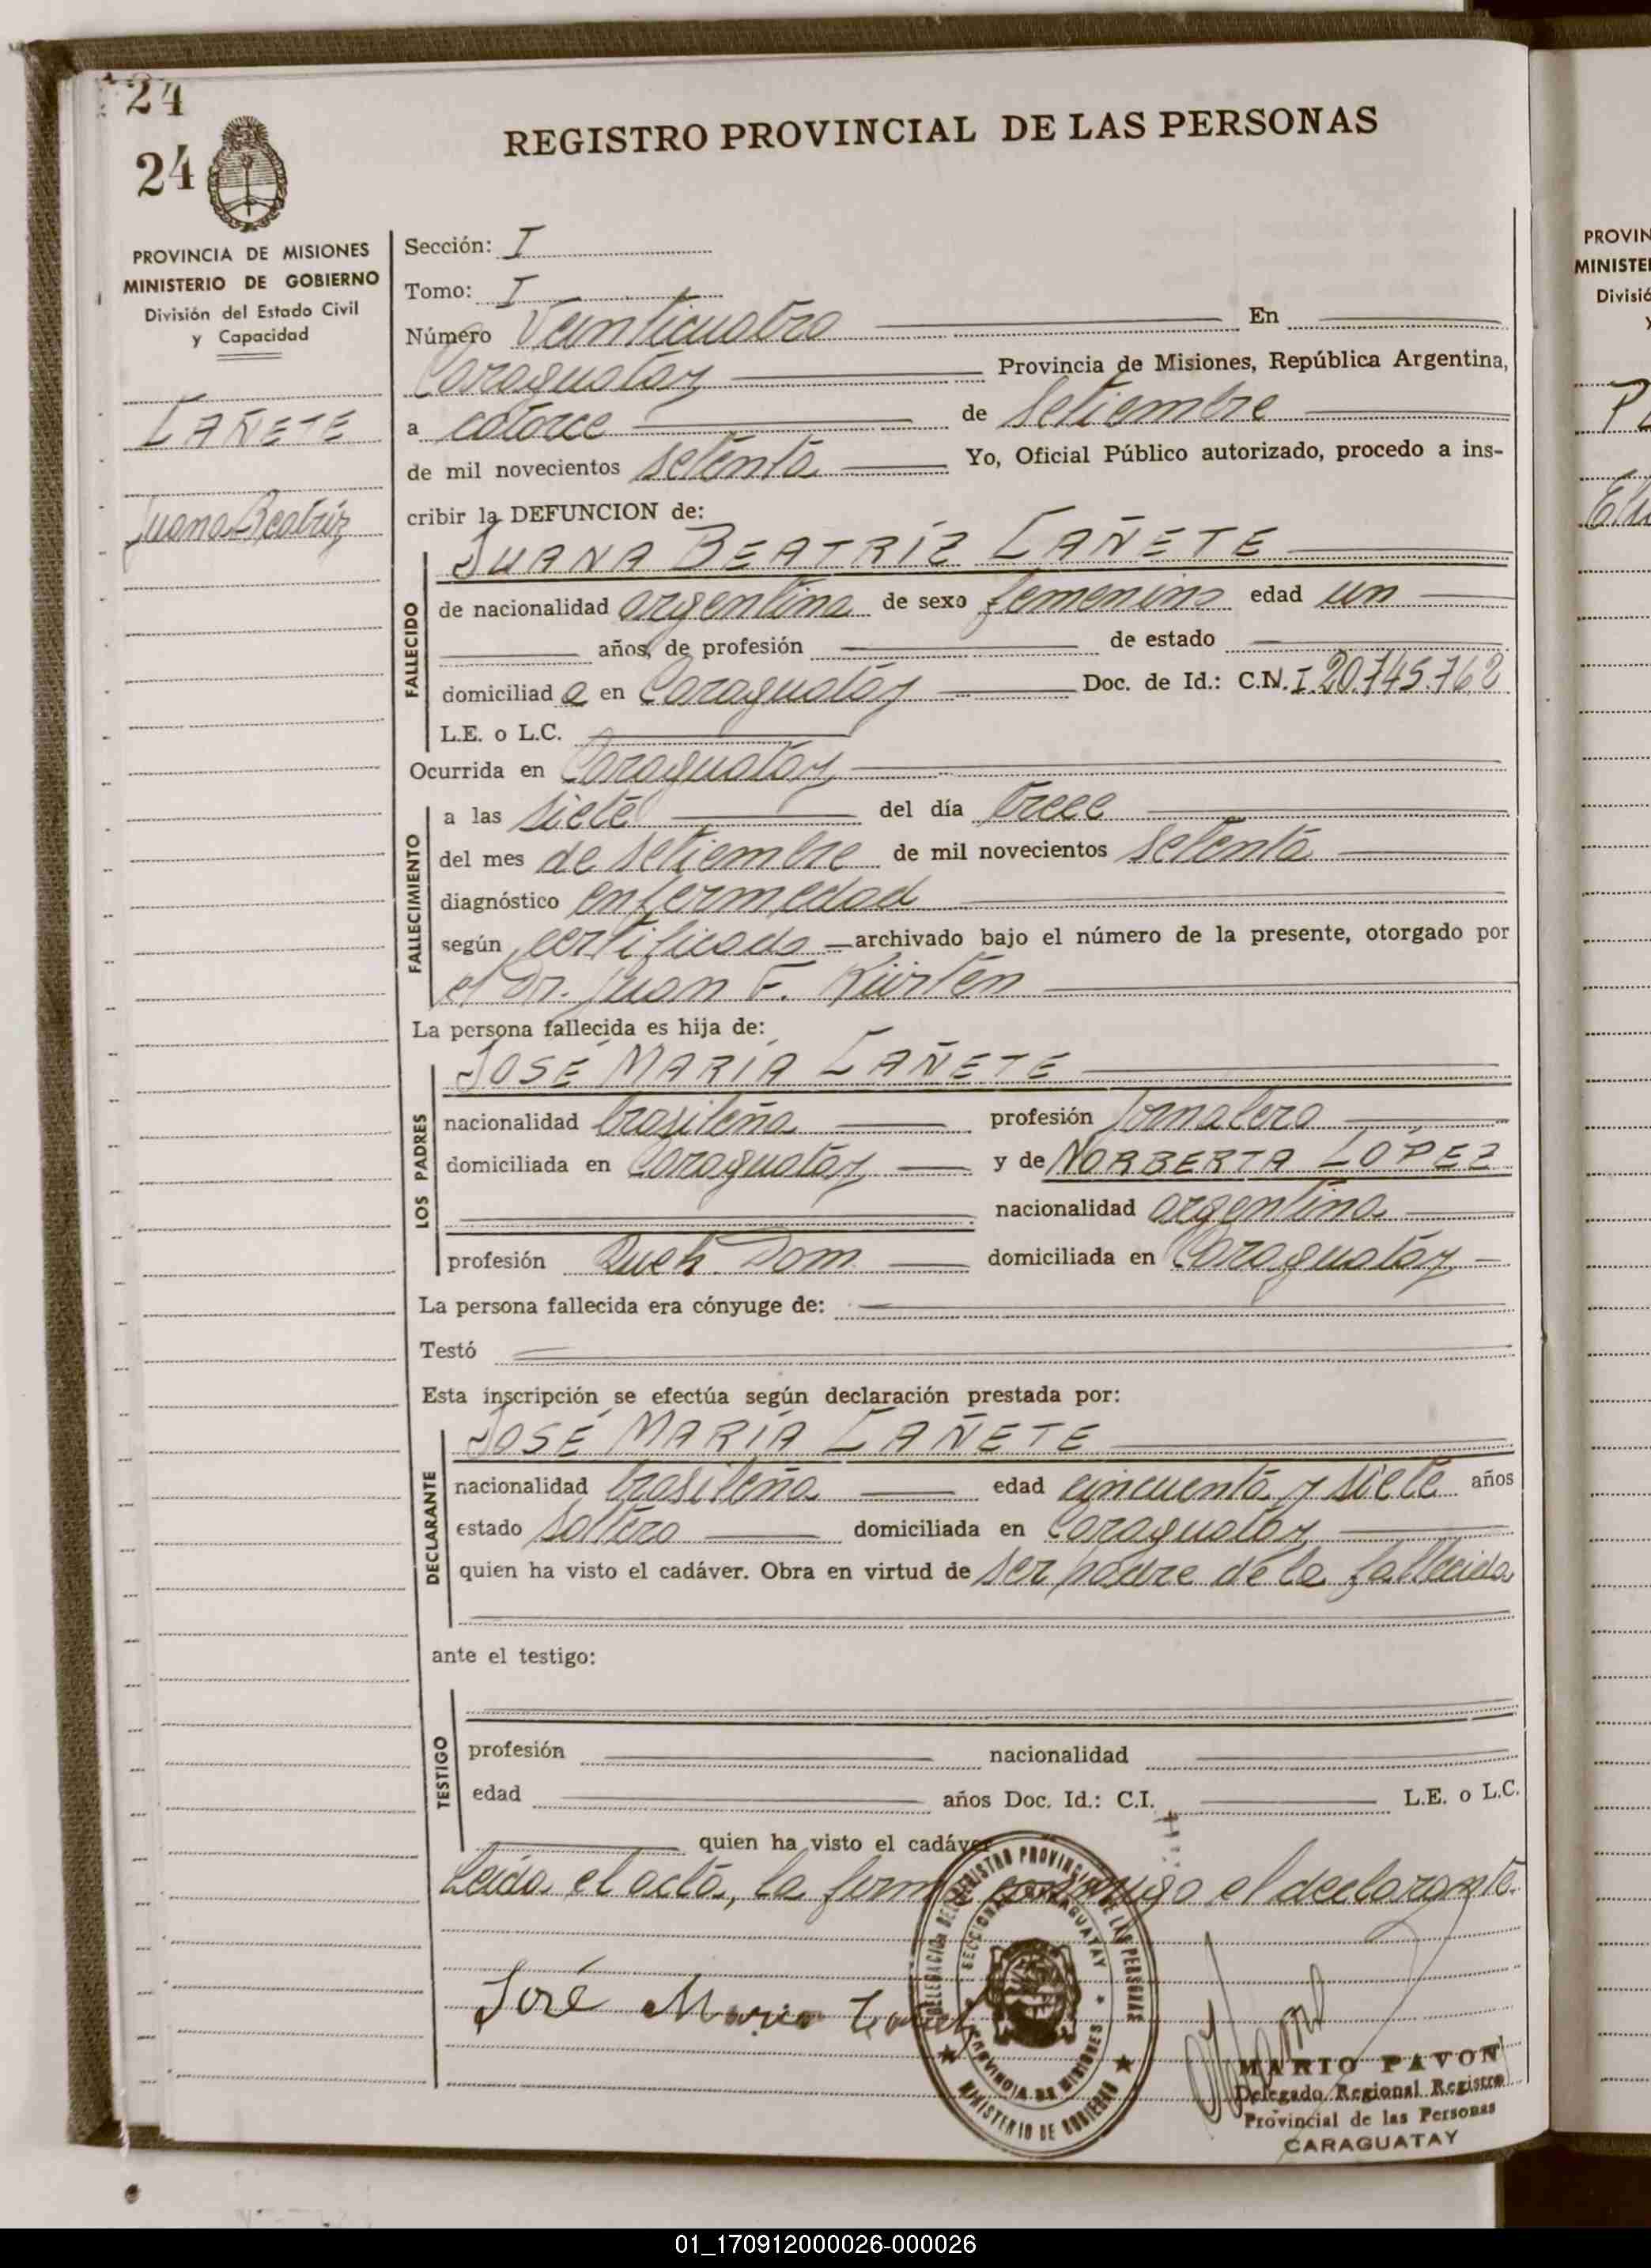 24
24
REGISTRO PROVINCIAL DE LAS PERSONAS
PROVINCIA DE MISIONES
MINISTERIO DE GOBIERNO
División del Estado Civil
y Capacidad
CAÑETE
Juana Beatriz
Sección: I
Tomo: I
Número Veinticuatro En
Caraguatay Provincia de Misiones, República Argentina,
a catorce de setiembre
de mil novecientos setenta Yo, Oficial Público autorizado, procedo a ins-
cribir la DEFUNCION de:
JUANA BEATRÍZ CAÑETE
FALLECIDO
de nacionalidad argentina de sexo femenino edad un
años, de profesión de estado
domiciliad a en Caraguatay Doc. de Id.: C.N.I. 20.745.762
L.E. o L.C.
Ocurrida en Caraguatay
FALLECIMIENTO
a las siete del día trece
del mes de setiembre de mil novecientos setenta
diagnóstico enfermedad
según certificado archivado bajo el número de la presente, otorgado por
el Dr. Juan F. Kürten
La persona fallecida es hija de:
LOS PADRES
JOSÉ MARÍA CAÑETE
nacionalidad brasileña profesión Jornalero
domiciliada en Caraguatay y de NORBERTA LÓPEZ
nacionalidad argentina
profesión Queh. Dom domiciliada en Caraguatay
La persona fallecida era cónyuge de:
Testó
Esta inscripción se efectúa según declaración prestada por:
DECLARANTE
JOSÉ MARÍA CAÑETE
nacionalidad brasileña edad cincuenta y siete años
estado soltero domiciliada en Caraguatay
quien ha visto el cadáver. Obra en virtud de ser padre de la fallecida
ante el testigo:
TESTIGO
profesión nacionalidad
edad años Doc. Id.: C.I. L.E. o L.C.
quien ha visto el cadáver
Leída el acta, la firma conmigo el declarante.
José Maria Cañete
DELEGACION DEL REGISTRO PROVINCIAL DE LAS PERSONAS
SECCIONAL CARAGUATAY
PROVINCIA DE MISIONES
MINISTERIO DE GOBIERNO
MARIO PAVON
Delegado Regional Registro
Provincial de las Personas
CARAGUATAY
PROVIN
MINISTE
Divisió
y
01_170912000026-000026